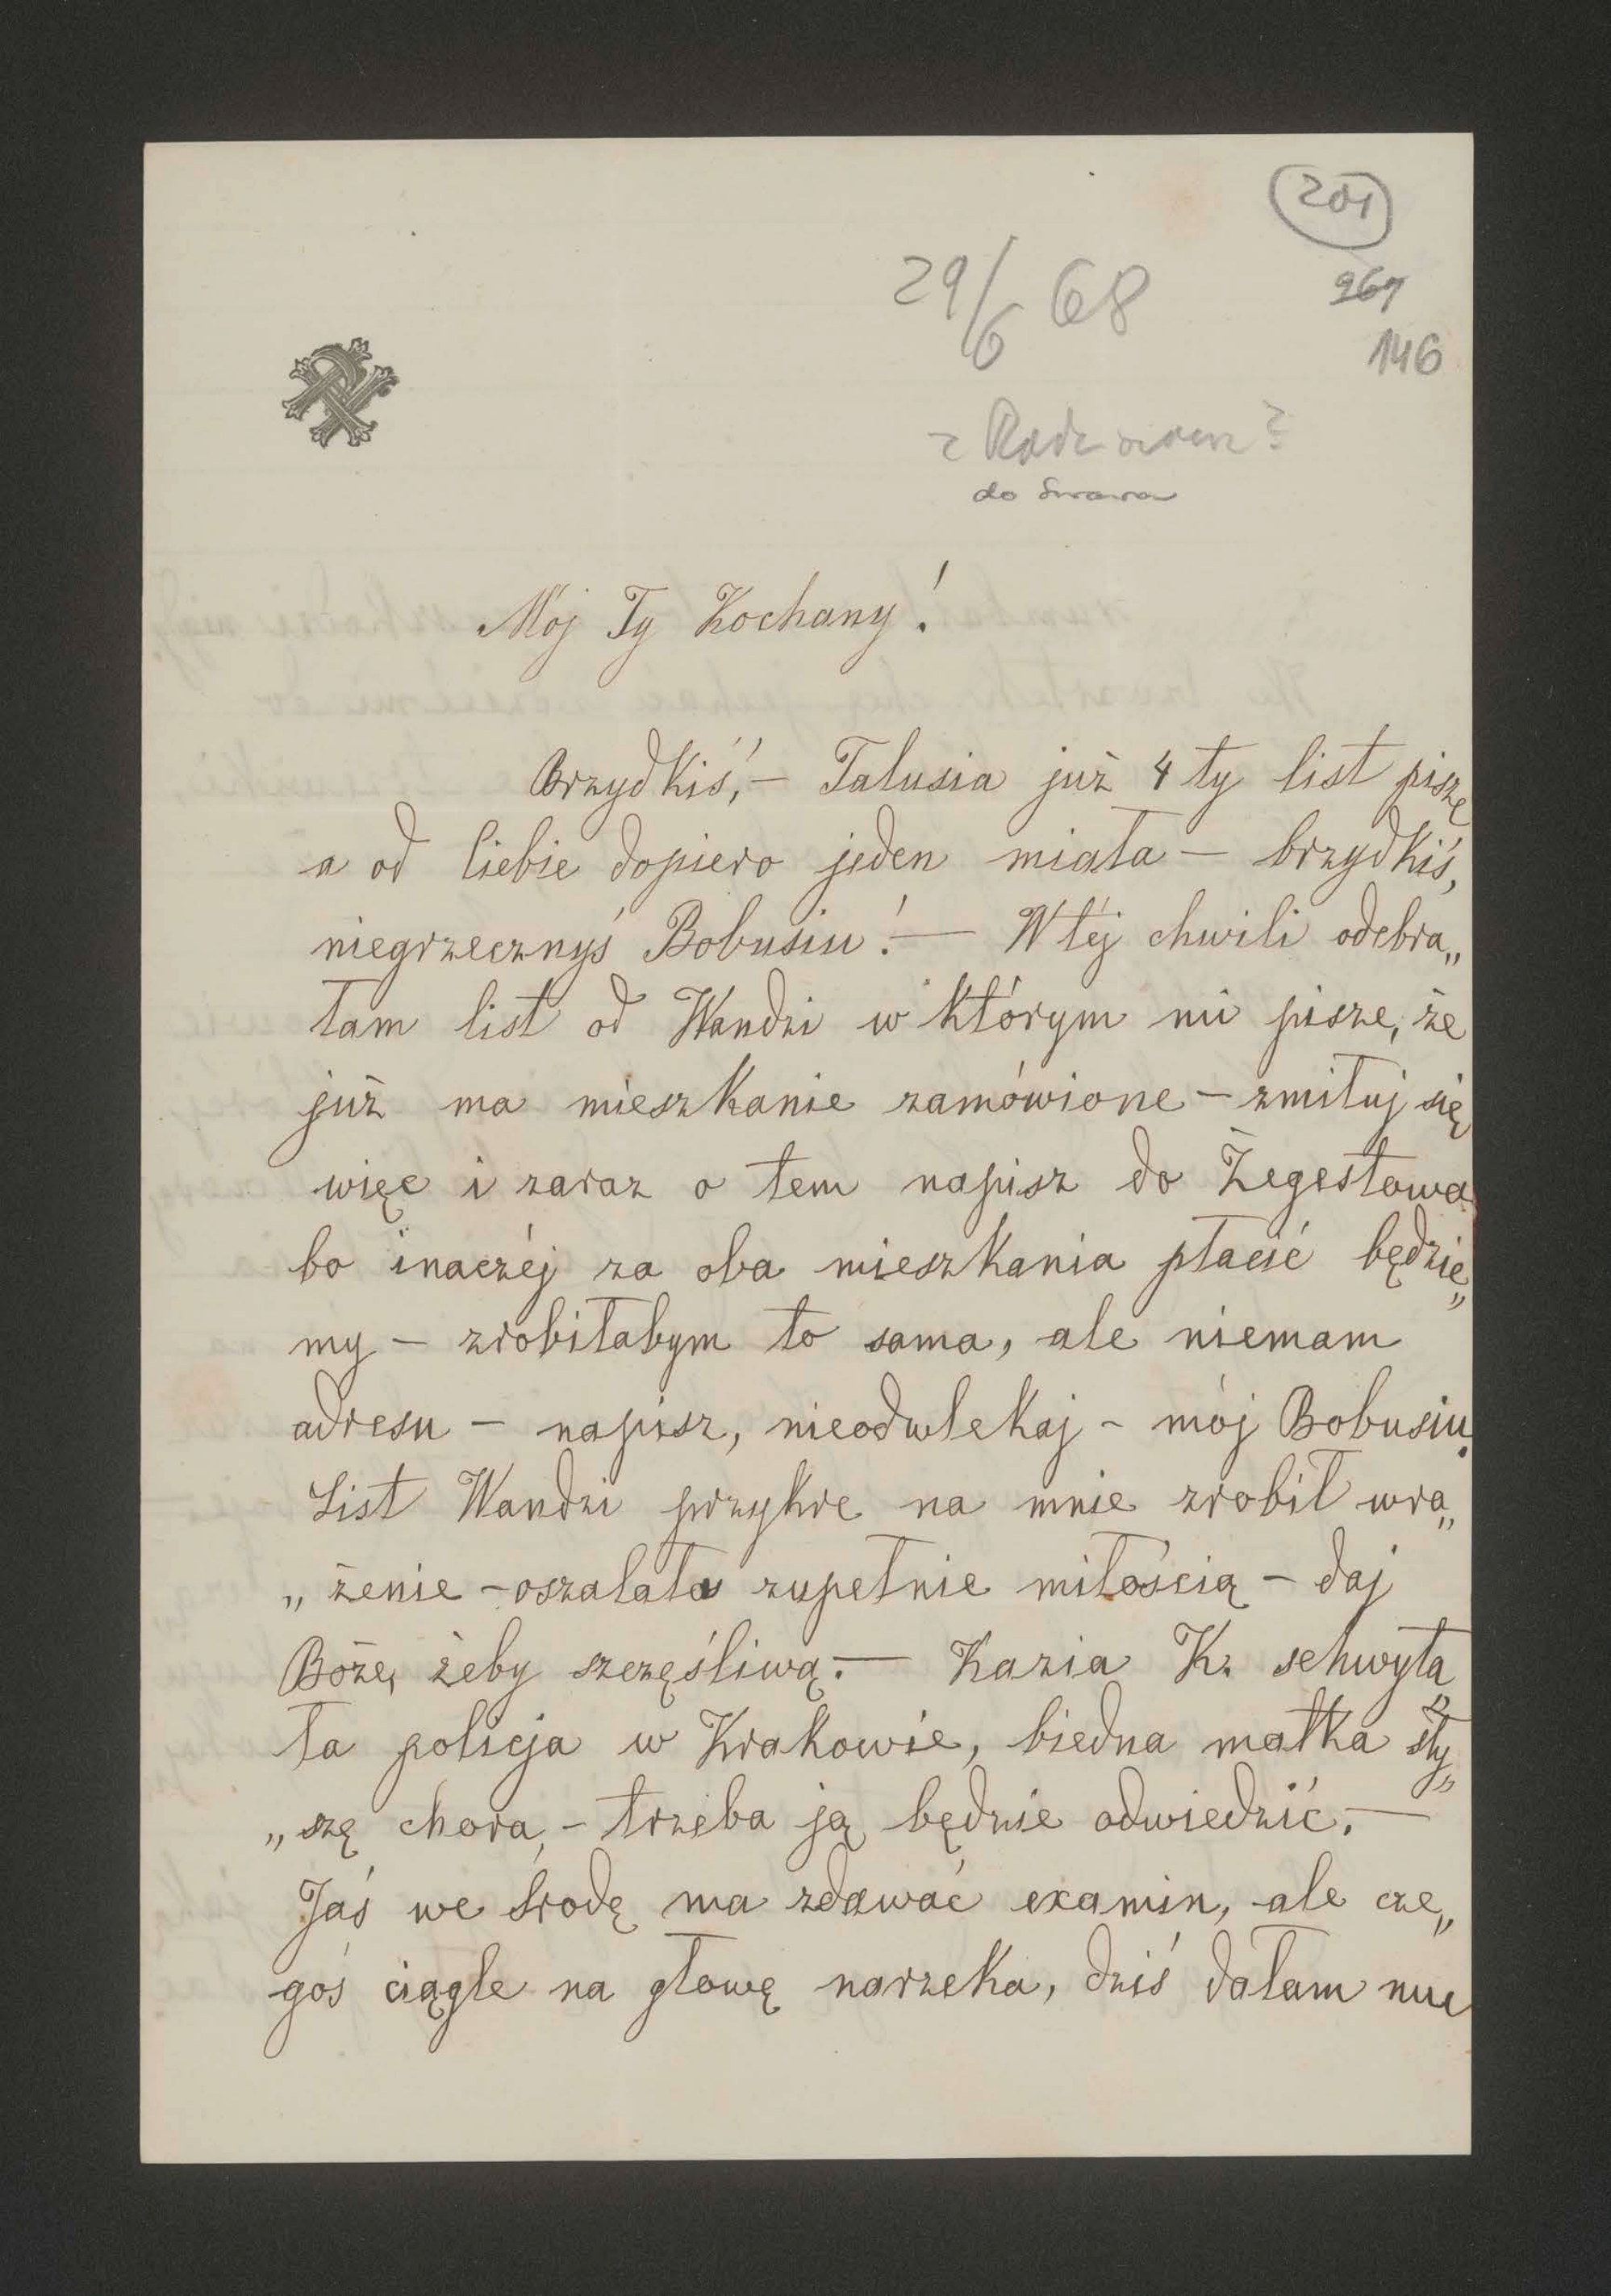 201
29/6 68
967
146
z
do
Mój Ty Kochany!
Brzydkiś, – Talusia już 4ty list piszę
a od Ciebie dopiero jeden miała – brzydkiś,
niegrzecznyś Bobusiu! — W téj chwili odebra„
łam list od Wandzi w którym mi pisze, że
już ma mieszkanie zamówione – zmiłuj się
więc i zaraz o tem napisz do Żegestowa
bo inaczéj za oba mieszkania płacić będzie„
my – zrobiłabym to sama, ale niemam
adresu – napisz, nieodwlekaj – mój Bobusiu.
List Wandzi przykre na mnie zrobił wra„
„żenie – oszalała zupełnie miłością – daj
Boże, żeby szczęśliwą. — Kazia K. schwyta„
ła policja w Krakowie, biedna matka sły„
„szę chora, – trzeba ją będzie odwiedzić. —
Jaś we środę ma zdawać examin, ale cze„
goś ciągle na głowę narzeka, dziś dałam mu